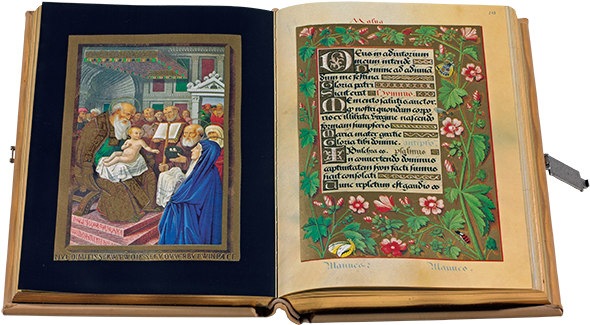 IN PACE
Deus in adiutorium
meum intende
Domine ad adiuuā
dum me festina
Gloria patri
Sicut erat Hymnus
Memento salutis auctor
q nostri quondam corpo
ris ex illibata virgine nascendo
formam sumpseris
Maria mater gratie
Gloria tibi domine. antipho
Pulchra es. psalmus
In conuertendo dominus
captiuitatem syon facti sumus
sicut consolati
Tunc repletum est gaudio os